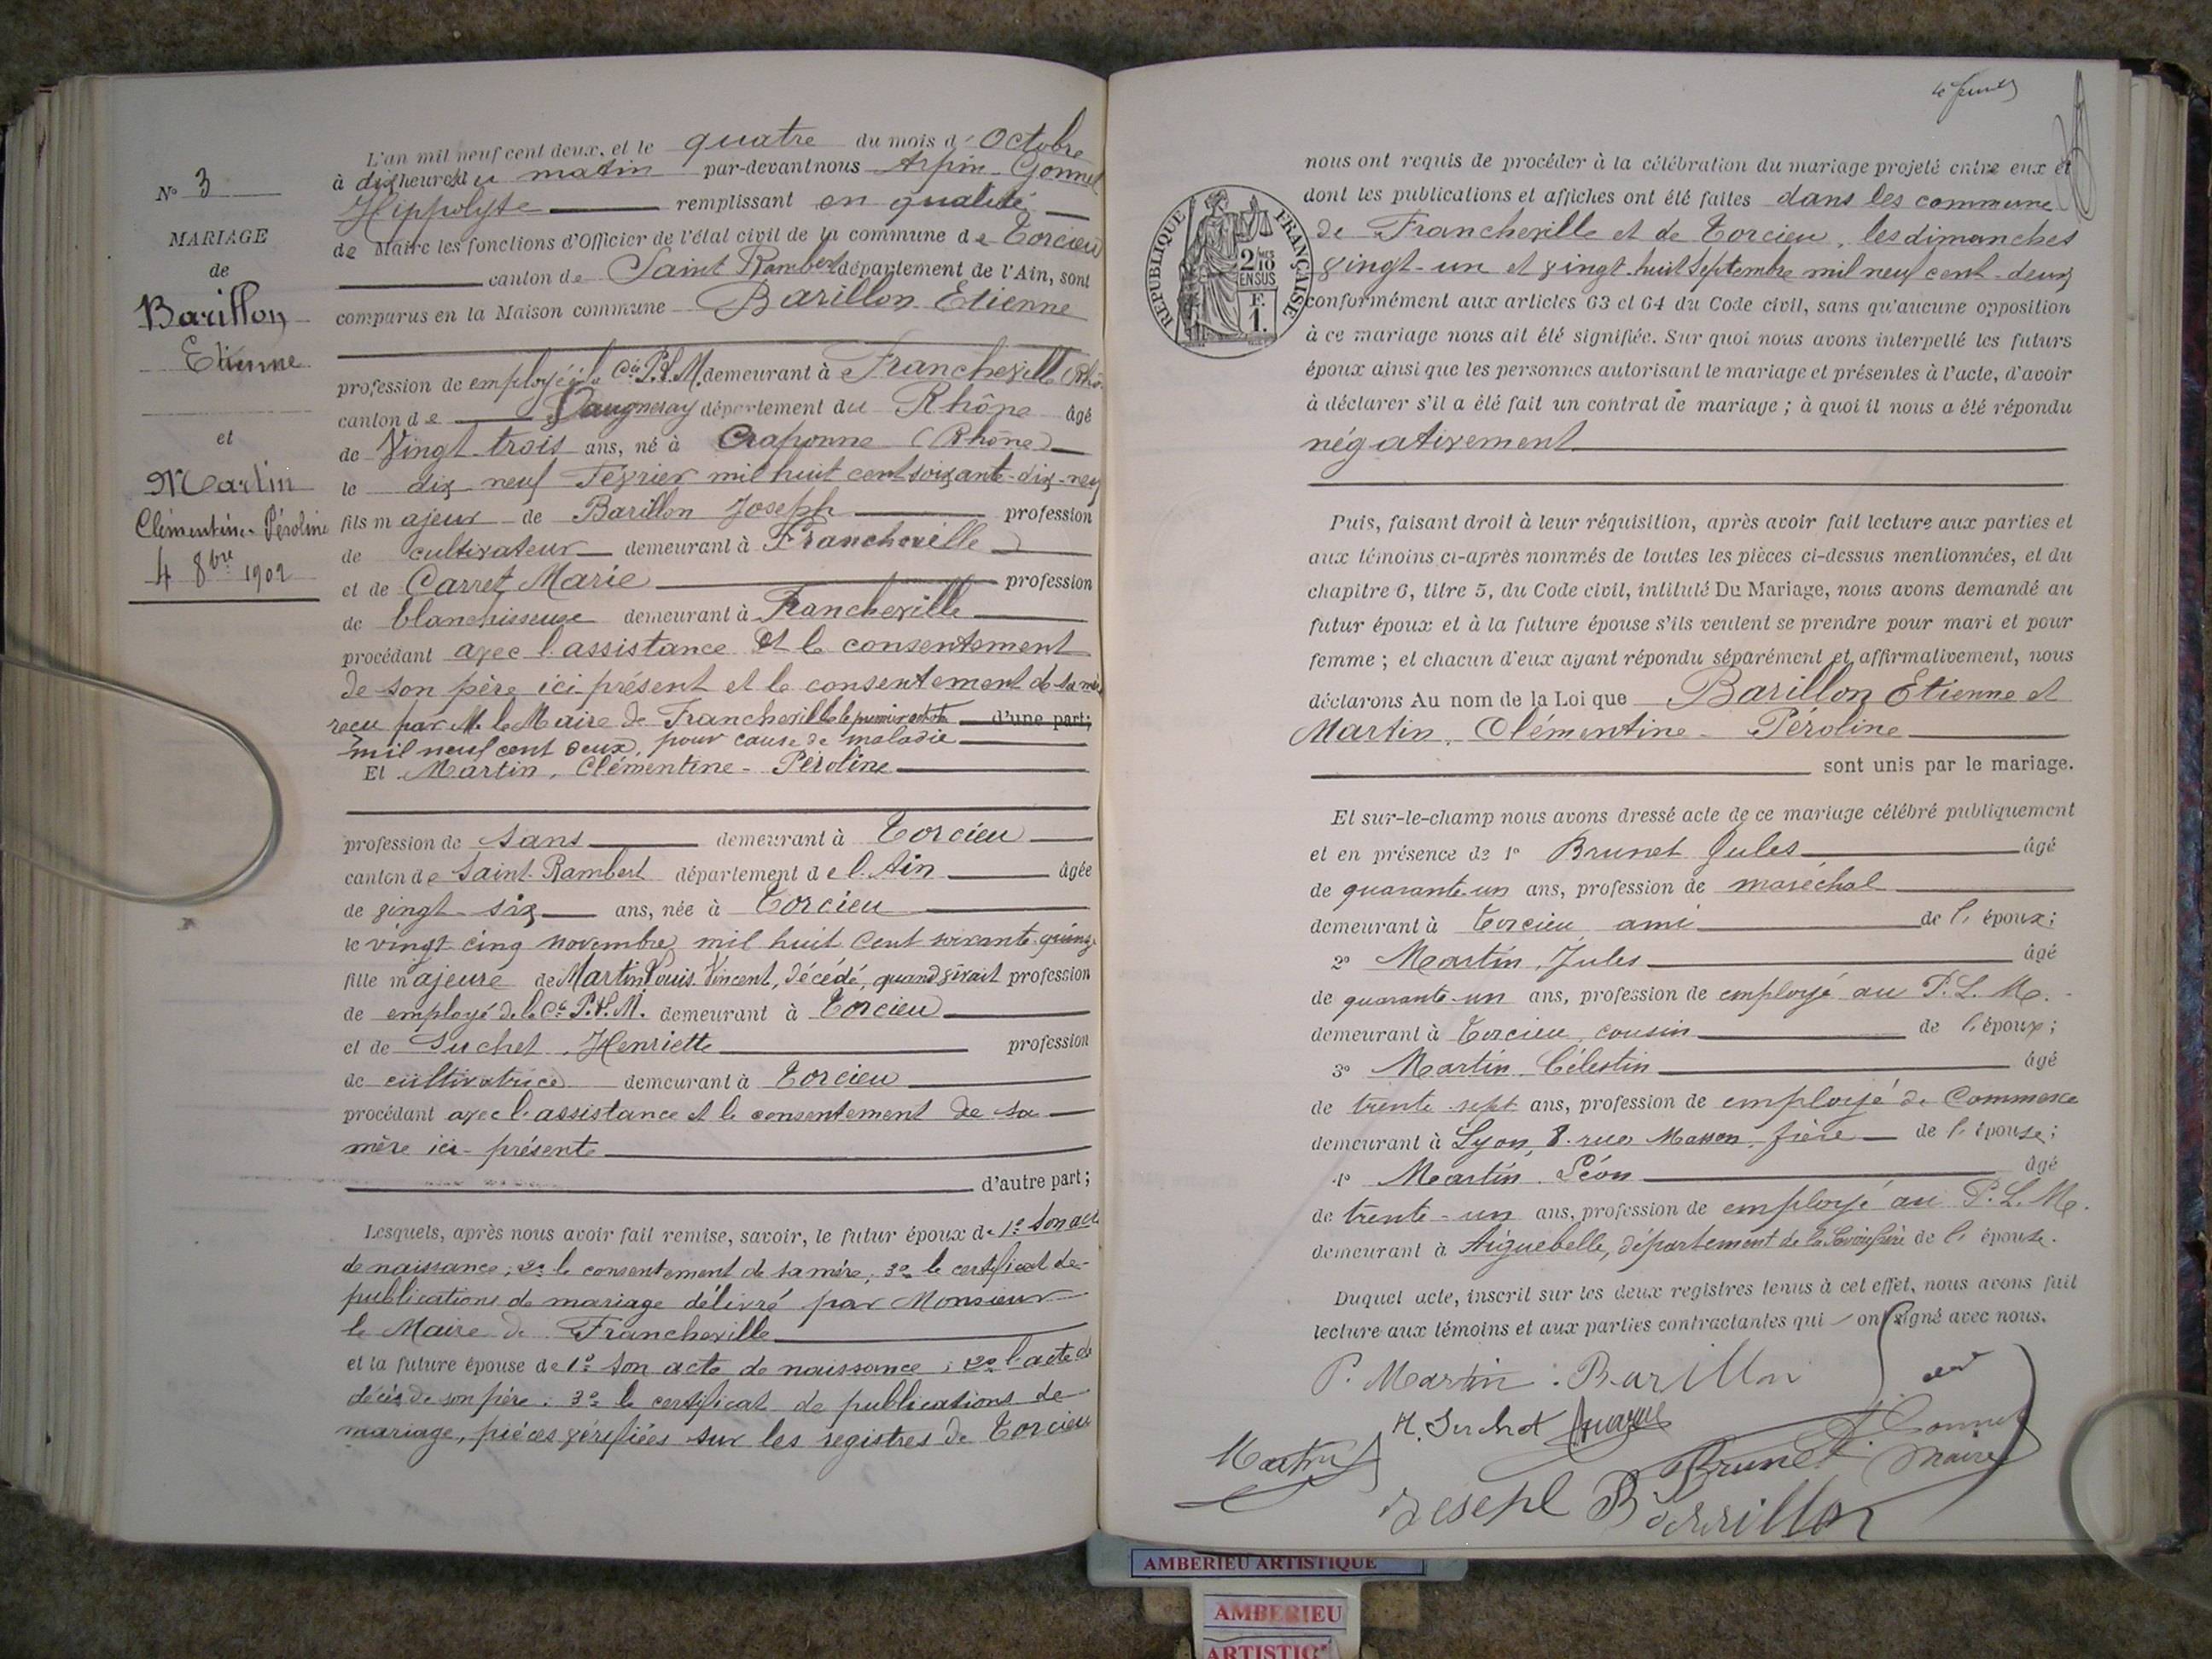 N° 3
MARIAGE
de
Barillon
Etienne
et
Martin
Clémentine-Péroline
4 8bre 1902
L'an mil neuf cent deux, et le quatre du mois d'Octobre
à dix heures du matin par-devant nous Arpin-Gonnet
Hippolyte remplissant en qualité
de Maire les fonctions d'Officier de l'état civil de la commune de Torcieu
canton de Saint Rambert département de l'Ain, sont
comparus en la Maison commune Barillon Etienne
profession de employé à la Cie P.L.M. demeurant à Francheville (Rhô
canton de Vaugneray département du Rhône âgé
de Vingt-trois ans, né à Craponne (Rhône)
le dix neuf Février mil huit cent soixante-dix-neuf
fils majeur de Barillon Joseph profession
de cultivateur demeurant à Francheville
et de Carret Marie profession
de blanchisseuse demeurant à Francheville
procédant avec l'assistance et le consentement
de son père ici présent et le consentement de sa mère
reçu par M. le Maire de Francheville le premier octobre d'une part;
mil neuf cent deux, pour cause de maladie
Et Martin, Clémentine-Péroline
profession de sans demeurant à Torcieu
canton de Saint-Rambert département de l'Ain âgée
de vingt-six ans, née à Torcieu
le vingt cinq novembre mil huit cent soixante quinze
fille majeure de Martin Louis Vincent, décédé, quand vivait profession
de employé de la Cie P.L.M. demeurant à Torcieu
et de Suchet, Henriette profession
de cultivatrice demeurant à Torcieu
procédant avec l'assistance et le consentement de sa
mère ici-présente
d'autre part;
Lesquels, après nous avoir fait remise, savoir, le futur époux de 1° son acte
de naissance; 2° le consentement de sa mère; 3° le certificat de
publications de mariage délivré par Monsieur
le Maire de Francheville
et la future épouse de 1° son acte de naissance; 2° l'acte de
décès de son père; 3° le certificat de publications de
mariage, pièces vérifiées sur les registres de Torcieu
RÉPUBLIQUE FRANÇAISE
2 10
EN SUS
F.
1.
nous ont requis de procéder à la célébration du mariage projeté entre eux et
dont les publications et affiches ont été faites dans les commune
de Francheville et de Torcieu, les dimanches
vingt-un et vingt-huit Septembre mil neuf cent-deux
conformément aux articles 63 et 64 du Code civil, sans qu'aucune opposition
à ce mariage nous ait été signifiée. Sur quoi nous avons interpellé les futurs
époux ainsi que les personnes autorisant le mariage et présentes à l'acte, d'avoir
à déclarer s'il a été fait un contrat de mariage; à quoi il nous a été répondu
négativement
Puis, faisant droit à leur réquisition, après avoir fait lecture aux parties et
aux témoins ci-après nommés de toutes les pièces ci-dessus mentionnées, et du
chapitre 6, titre 5, du Code civil, intitulé Du Mariage, nous avons demandé au
futur époux et à la future épouse s'ils veulent se prendre pour mari et pour
femme; et chacun d'eux ayant répondu séparément et affirmativement, nous
déclarons Au nom de la Loi que Barillon Etienne et
Martin, Clémentine-Péroline
sont unis par le mariage.
Et sur-le-champ nous avons dressé acte de ce mariage célébré publiquement
et en présence de 1° Brunet Jules âgé
de quarante-un ans, profession de maréchal
demeurant à Torcieu ami de l'époux;
2° Martin, Jules âgé
de quarante-un ans, profession de employé au P.L.M.
demeurant à Torcieu, cousin de l'époux;
3° Martin Célestin âgé
de trente-sept ans, profession de employé de Commerce
demeurant à Lyon, 8. rue Masson, frère de l'épouse;
4° Martin Léon âgé
de trente-un ans, profession de employé au P.L.M.
demeurant à Aiguebelle, département de la Savoie frère de l'épouse.
Duquel acte, inscrit sur les deux registres tenus à cet effet, nous avons fait
lecture aux témoins et aux parties contractantes qui ont signé avec nous.
P. Martin Barillon
H. Suchet
Martin Brunet Gonnet
Maire
Joseph Barillon
AMBERIEU ARTISTIQUE
AMBERIEU
ARTISTIQ